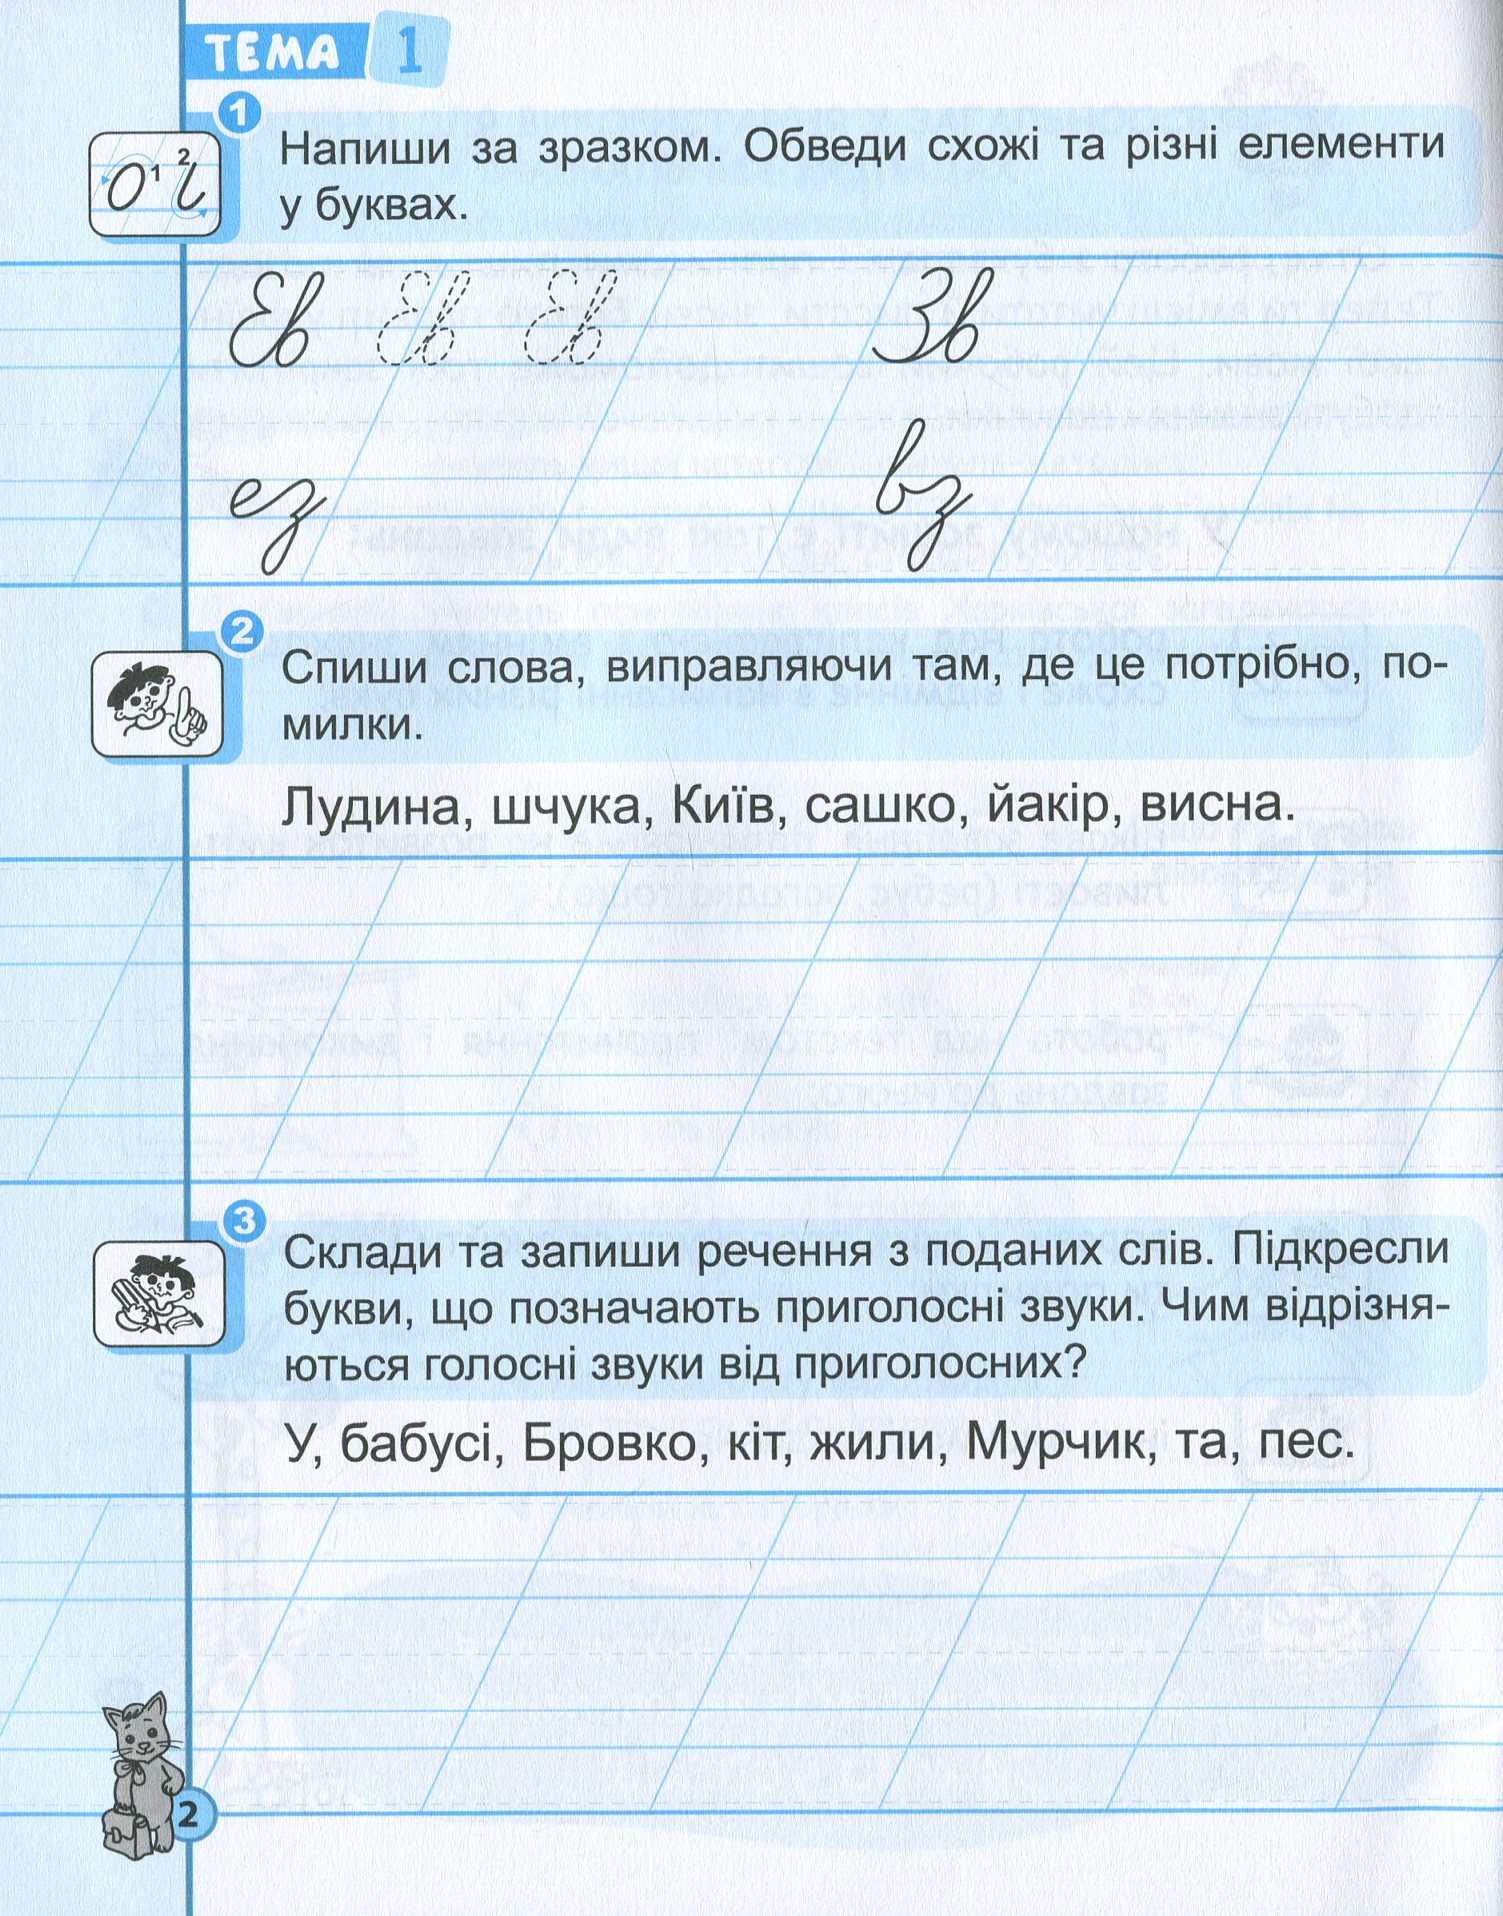 ТЕМА 1
1
Напиши за зразком. Обведи схожі та різні елементи
у буквах.
О 1 2 і
Єв Єв Єв Зв
ез вз
2
Спиши слова, виправляючи там, де це потрібно, по-
милки.
Лудина, шчука, Київ, сашко, йакір, висна.
3
Склади та запиши речення з поданих слів. Підкресли
букви, що позначають приголосні звуки. Чим відрізня-
ються голосні звуки від приголосних?
У, бабусі, Бровко, кіт, жили, Мурчик, та, пес.
2